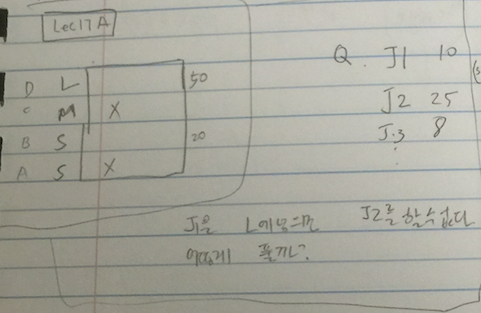 Lec17A
D L 50
C M X
B S 20
A S X
Q. J1 10
J2 25
J.3 8
:
J1을 L에 넣으면 J2를 할 수 없다
어떻게 풀까?